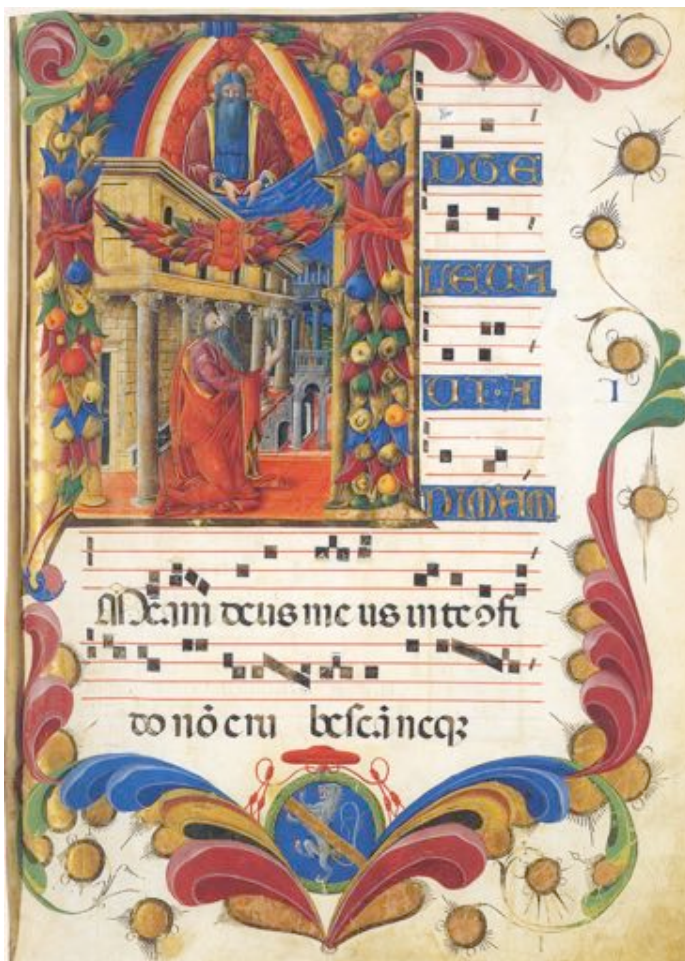 AD TE
LEVA
VI · A
NIMAM
Meam deus me us in te ɔfi
do nō eru bescā neqꝫ